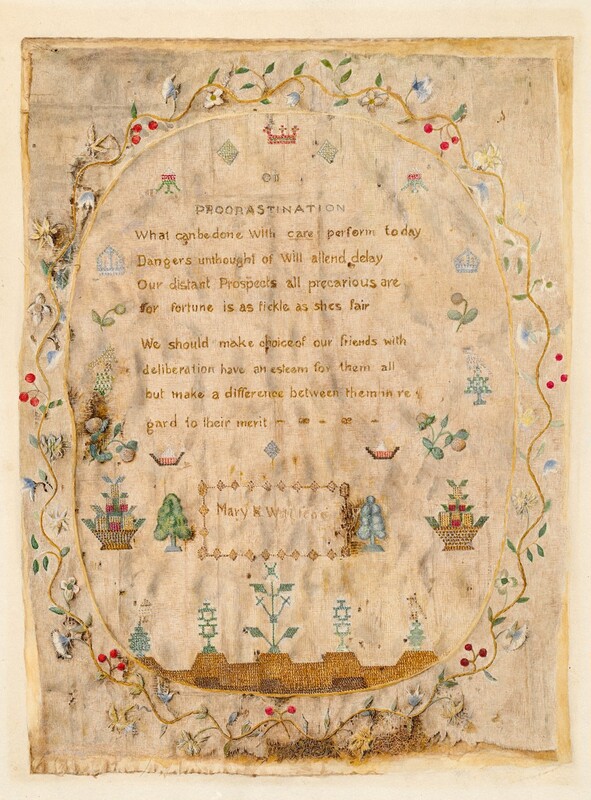 On
PROCRASTINATION
What canbe done With care perform to day
Dangers unthought of Will attend delay
Our distant Prospects all precarious are
for fortune is as fickle as shes fair
We should make choice of our friends with
deliberation have an esteam for them all
but make a difference between them in re
gard to their merit
Mary K